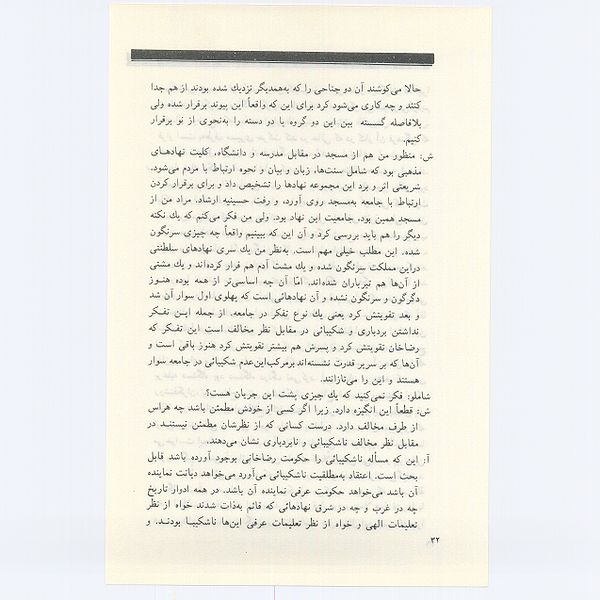 حالا می‌کوشند آن دو جناحی را که به‌همدیگر نزدیك شده بودند از هم جدا
کنند و چه کاری می‌شود کرد برای این که واقعاً این پیوند برقرار شده ولی
بلافاصله گسسته بین این دو گروه یا دو دسته را به‌نحوی از نو برقرار
کنیم.
ش: منظور من هم از مسجد در مقابل مدرسه و دانشگاه، کلیت نهادهای
مذهبی بود که شامل سنت‌ها، زبان و بیان و نحوه ارتباط با مردم می‌شود.
شریعتی اثر و برد این مجموعه نهادها را تشخیص داد و برای برقرار کردن
ارتباط با جامعه به‌مسجد روی آورد، و رفت حسینیه ارشاد. مراد من از
مسجد همین بود، جامعیت این نهاد بود. ولی من فکر می‌کنم که یك نکته
دیگر را هم باید بررسی کرد و آن این که ببینیم واقعاً چه چیزی سرنگون
شده. این مطلب خیلی مهم است. به‌نظر من یك سری نهادهای سلطنتی
دراین مملکت سرنگون شده و یك مشت آدم هم فرار کرده‌اند و یك مشتی
از آن‌ها هم تیرباران شده‌اند. امّا آن چه اساسی‌تر از همه بوده هنوز
دگرگون و سرنگون نشده و آن نهادهائی است که پهلوی اول سوار آن شد
و بعد تقویتش کرد یعنی یك نوع تفکر در جامعه. از جمله این تفکر
نداشتن بردباری و شکیبائی در مقابل نظر مخالف است این تفکری که
رضاخان تقویتش کرد و پسرش هم بیشتر تقویتش کرد هنوز باقی است و
آن‌ها که بر سریر قدرت نشسته‌اند برمرکب‌این‌عدم شکیبائی در جامعه سوار
هستند و این را می‌تازانند.
شاملو: فکر نمی‌کنید که یك چیزی پشت این جریان هست؟
ش: قطعاً این انگیزه دارد. زیرا اگر کسی از خودش مطمئن باشد چه هراس
از طرف مخالف دارد. درست کسانی که از نظرشان مطمئن نیستند در
مقابل نظر مخالف ناشکیبائی و نابردباری نشان می‌دهند.
آ: این که مسأله ناشکیبائی را حکومت رضاخانی بوجود آورده باشد قابل
بحث است. اعتقاد به‌مطلقیت ناشکیبائی می‌آورد می‌خواهد دیانت نماینده
آن باشد می‌خواهد حکومت عرفی نماینده آن باشد. در همه ادوار تاریخ
چه در غرب و چه در شرق نهادهائی که قائم به‌ذات شدند خواه از نظر
تعلیمات الهی و خواه از نظر تعلیمات عرفی این‌ها ناشکیبا بودند. و
۳۲